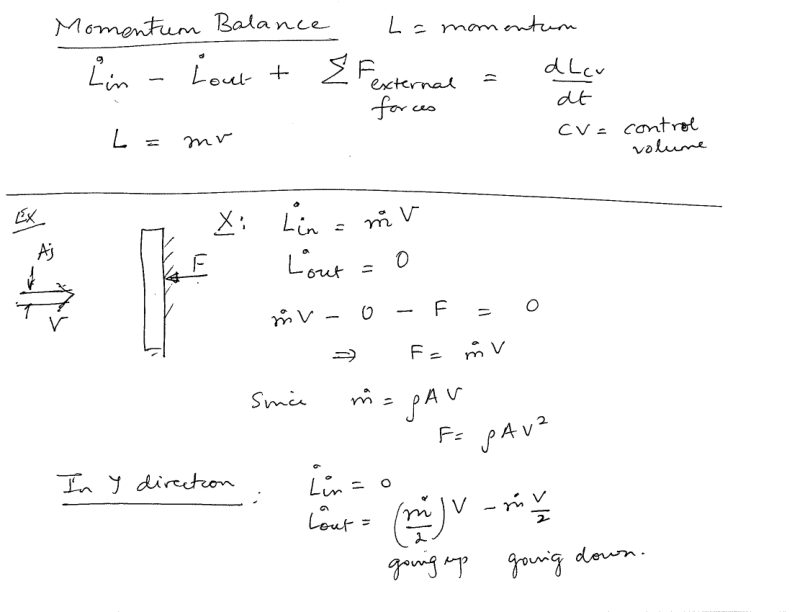 Momentum Balance L = momentum
L̇in - L̇out + ΣF external forces = dLcv/dt
L = mv
CV = control volume
Ex
X: L̇in = ṁV
Aj
F
V
L̇out = 0
ṁV - 0 - F = 0
⇒ F = ṁV
Since ṁ = ρAV
F = ρAV²
In y direction : L̇in = 0
L̇out = (ṁ/2)V - ṁ V/2
going up going down.